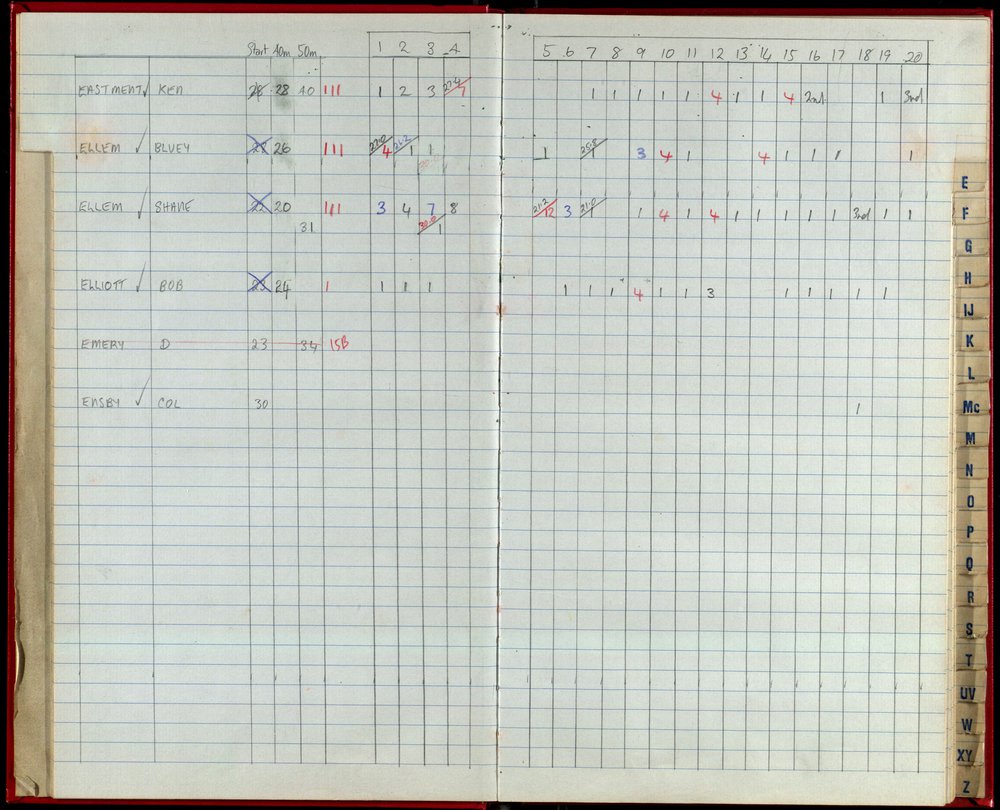 Start 40m 50m 1 2 3 4 5 6 7 8 9 10 11 12 13 14 15 16 17 18 19 20
EASTMENT ✓ KEN 28 40 111 1 2 3 27.4 1 1 1 1 1 1 4 1 1 4 2nd 1 3rd
ELLEM ✓ BLUEY 26 111 27.0 4 26.2 1 1 1 25.8 1 3 4 1 4 1 1 1 1
ELLEM ✓ SHANE 20 111 3 4 7 8 21.2 12 3 21.0 1 1 4 1 4 1 1 1 1 1 3rd 1 1
31 30.0 1
ELLIOTT ✓ BOB 24 1 1 1 1 1 1 1 4 1 1 3 1 1 1 1 1
EMERY D 23 34 15B
ENSBY ✓ COL 30 1
E
F
G
H
IJ
K
L
Mc
M
N
O
P
Q
R
S
T
UV
W
XY
Z